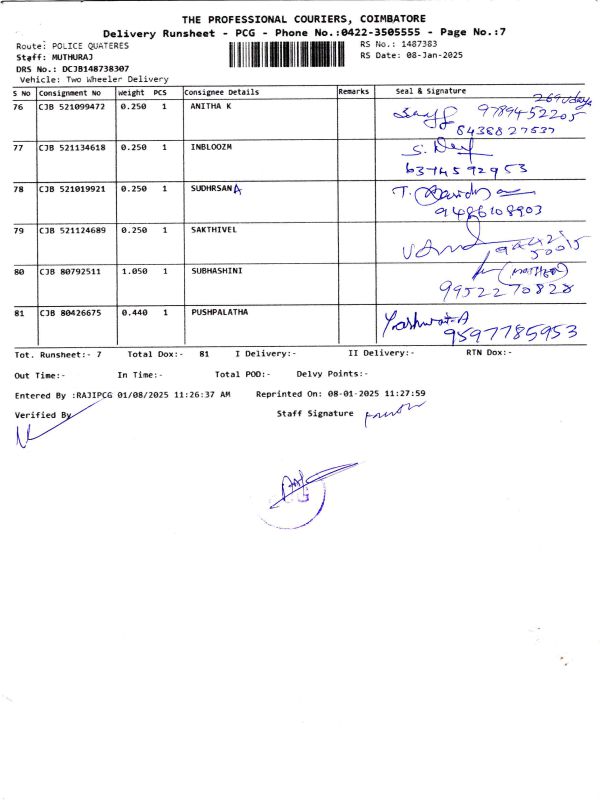 THE PROFESSIONAL COURIERS, COIMBATORE
Delivery Runsheet - PCG - Phone No.:0422-3505555 - Page No.:7
Route: POLICE QUATERES RS No.: 1487383
Staff: MUTHURAJ RS Date: 08-Jan-2025
DRS No.: DCJB148738307
Vehicle: Two Wheeler Delivery
S No Consignment No Weight PCS Consignee Details Remarks Seal & Signature
76 CJB 521099472 0.250 1 ANITHA K 9789452205
8438827537
77 CJB 521134618 0.250 1 INBLOOZM
6374592953
78 CJB 521019921 0.250 1 SUDHRSANA T.
9486108903
79 CJB 521124689 0.250 1 SAKTHIVEL
80 CJB 80792511 1.050 1 SUBHASHINI
9952270828
81 CJB 80426675 0.440 1 PUSHPALATHA
9597785953
Tot. Runsheet:- 7 Total Dox:- 81 I Delivery:- II Delivery:- RTN Dox:-
Out Time:- In Time:- Total POD:- Delvy Points:-
Entered By :RAJIPCG 01/08/2025 11:26:37 AM Reprinted On: 08-01-2025 11:27:59
Verified By Staff Signature